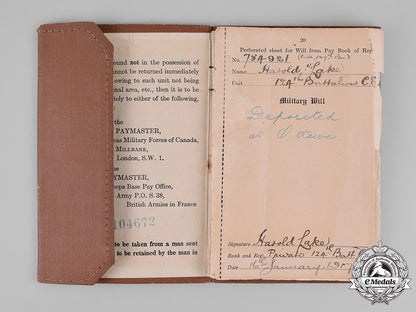 ound not in the possession of
annot be returned immediately
to such unit not being
onal area, etc., then it is to be
ely to either of the following,
the
PAYMASTER,
eas Military Forces of Canada,
MILLBANK,
London, S.W. 1.
YMASTER,
oops Base Pay Office,
Army P.O. S.38,
British Armies in France
104672
to be taken from a man sent
to be retained by the man in
20
Perforated sheet for Will from Pay Book of Reg
No. 784921
Name Harold Lake
Unit 124th Battalion C.E.
Military Will
Deposited
at Ottawa
Signature Harold Lake
Rank and Reg. Private 124 Batt
Date January
eMedals